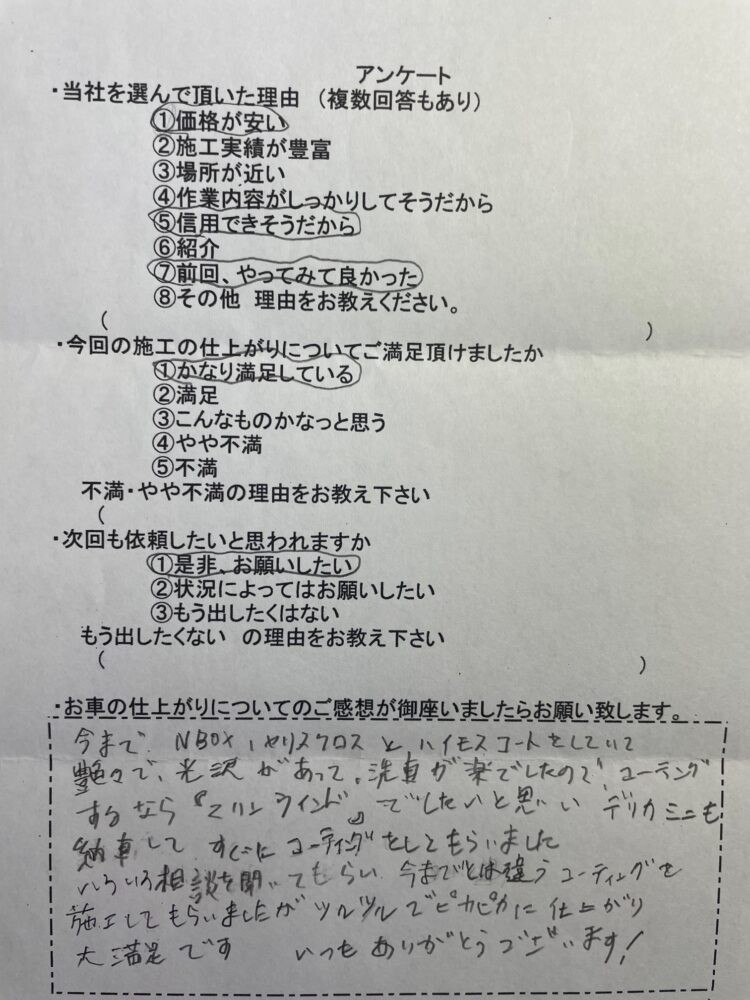 アンケート
・当社を選んで頂いた理由 （複数回答もあり）
①価格が安い
②施工実績が豊富
③場所が近い
④作業内容がしっかりしてそうだから
⑤信用できそうだから
⑥紹介
⑦前回、やってみて良かった
⑧その他 理由をお教えください。
（ ）
・今回の施工の仕上がりについてご満足頂けましたか
①かなり満足している
②満足
③こんなものかなっと思う
④やや不満
⑤不満
不満・やや不満の理由をお教え下さい
（
・次回も依頼したいと思われますか
①是非、お願いしたい
②状況によってはお願いしたい
③もう出したくはない
もう出したくない の理由をお教え下さい
（ ）
・お車の仕上がりについてのご感想が御座いましたらお願い致します。
今まで、NBOX、ヤリスクロスと、ハイモスコートをしていて
艶々で、光沢があって、洗車が楽でしたので、コーティング
するなら『マリンウインド』でしたいと思い デリカミニも
納車して すぐに コーティングをしてもらいました
いろいろ相談を聞いてもらい、今までとは違うコーティングを
施工してもらいましたが ツルツルでピカピカに仕上がり
大満足です いつもありがとうございます！